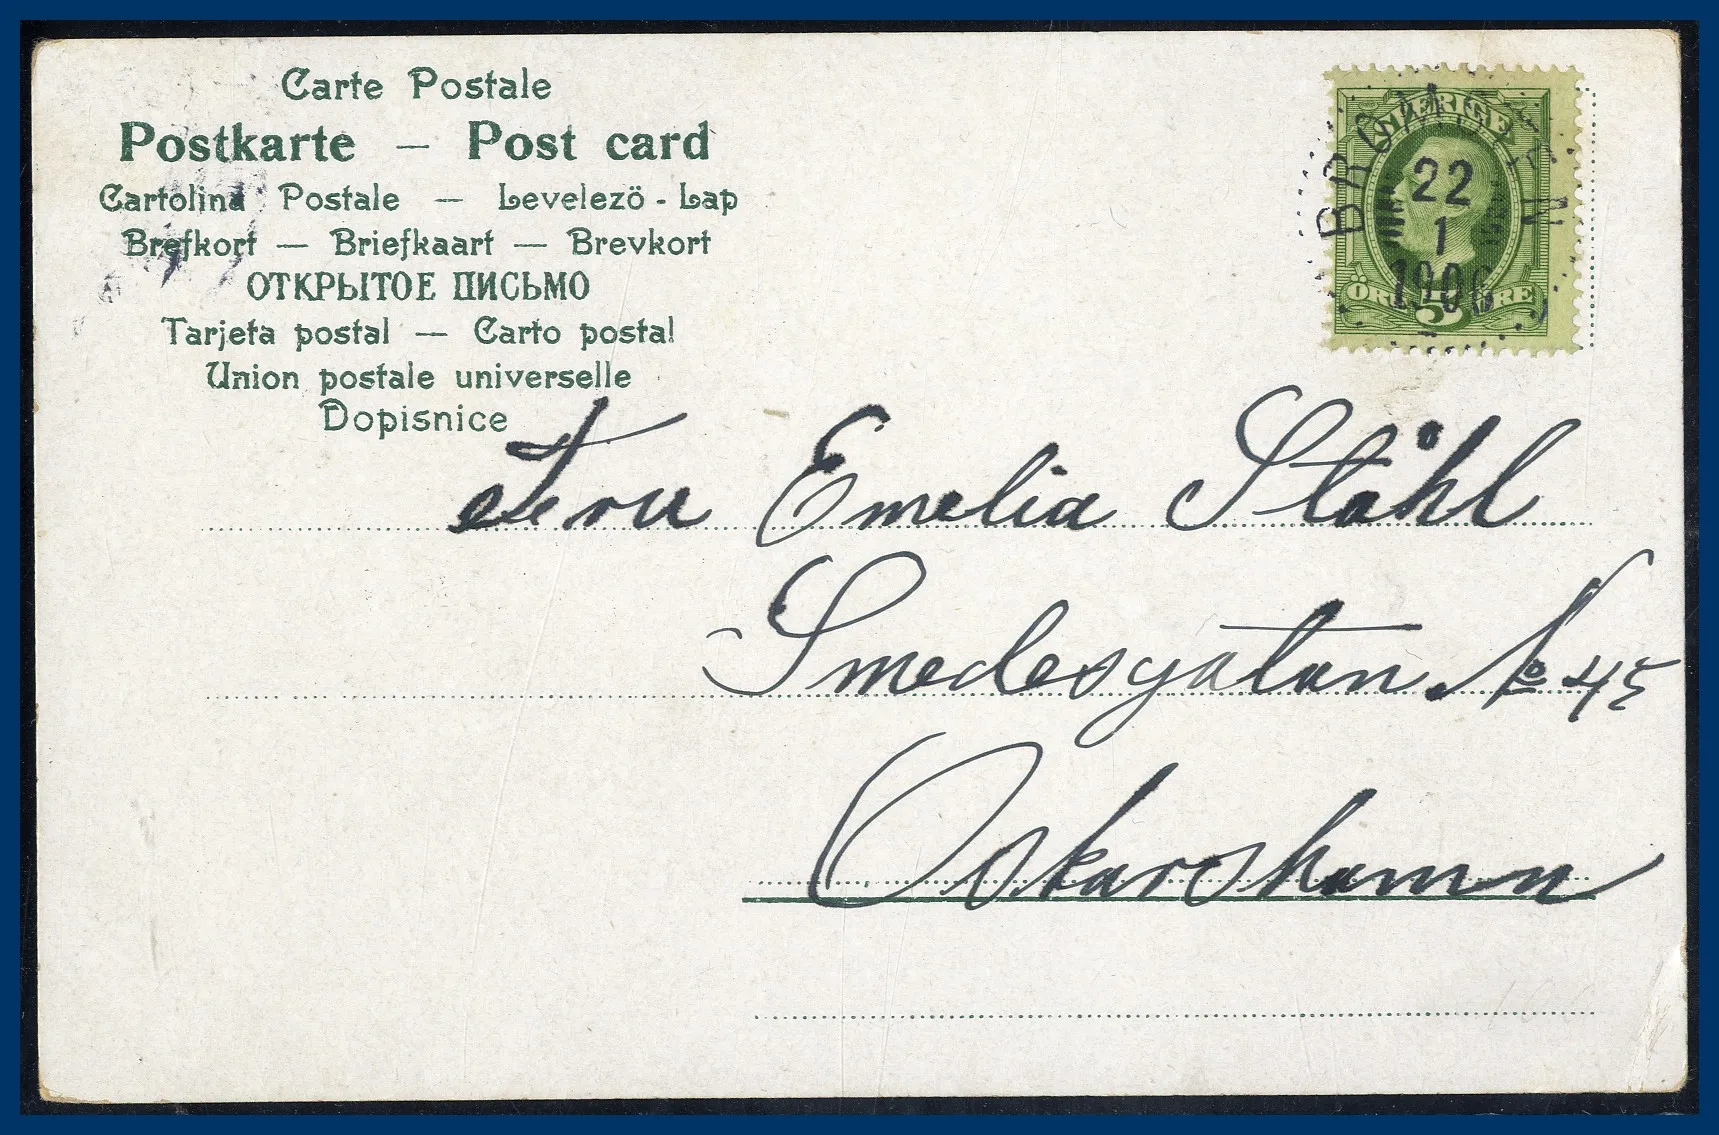 Carte Postale
Postkarte — Post card
Cartolina Postale — Levelezö - Lap
Brefkort — Briefkaart — Brevkort
ОТКРЫТОЕ ПИСЬМО
Tarjeta postal — Carto postal
Union postale universelle
Dopisnice
SVERIGE
22
1
1906
ÖRE 5 ÖRE
Fru Emelia Ståhl
Smedesgatan No 45
Oskarshamn